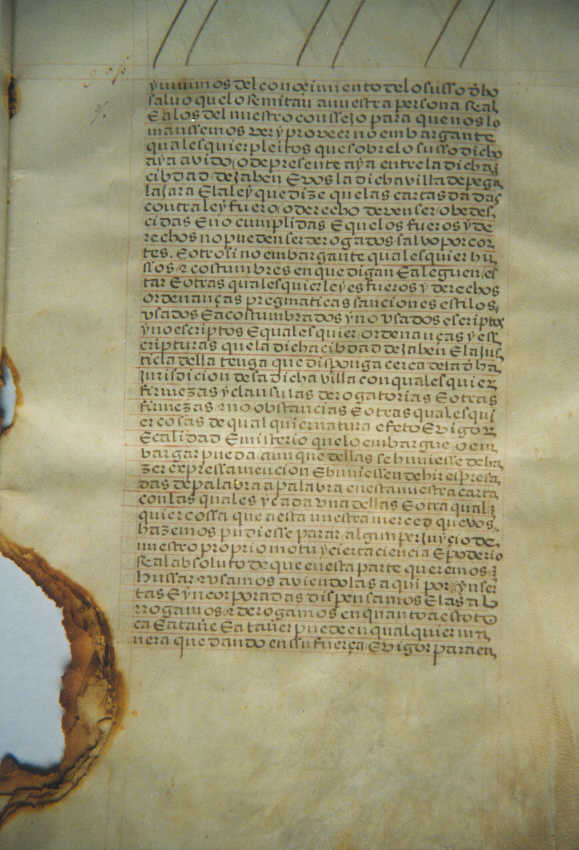 ynivimos del conoscimiento delo suso dho
salvo que lo Remitan a nuestra persona Real
E a los del nuestro conssejo para que nos lo
manssemos ver y proveer no embargante
quales quier pleitos que sobre lo suso dicho
aya avido o de presente aya entre la dicha
cibdad de Jahen E vos la dicha villa de pega
lajara E la ley que dize que las cartas dadas
contra ley fuero o derecho deven ser obedes
cidas E no cumplidas E que los fueros y de
rechos no pueden ser derogados salvo por cor
tes. E otrosi no embargante quales quier hu
ssos & costumbres en que digan E aleguen es
tar E otras quales quier leyes fueros y derechos
ordenanças pregmaticas sanciones estilos
usados E acostumbrados y no usados escriptos
y no escriptos E quales quier ordenanças y ess
cripturas que la dicha cibdad de Jahen E la jus
ticia della tenga que disponga cerca de la dha
Jurisdicion desa dicha villa con quales quier
firmezas y clausulas derogatorias E otras
firmezas & no obstancias E otras quales qui
er cosas de qual quier natura efeto E vigor
E calidad E misterio que lo embargue o em
bargar pueda aunque dellas se huviesse de ha
zer expressa mencion E huviessen de hir espresa
das de palabra a palabra en esta nuestra carta
con las quales y cada una dellas E otra qual
quier cossa que a esta nuestra merced que vos
hazemos pudiesse parar algun perjuycio de
nuestro proprio motu y cierta ciencia E poderio
Real absoluto de que en esta parte queremos
hussar & usamos aviendolas aqui por ynser
tas E yncorporadas dispensamos E las ab
rrogamos & derogamos en quanto a esto to
ca E atañe E atañer puede en qual quier ma
nera quedando en su fuerça E vigor para en